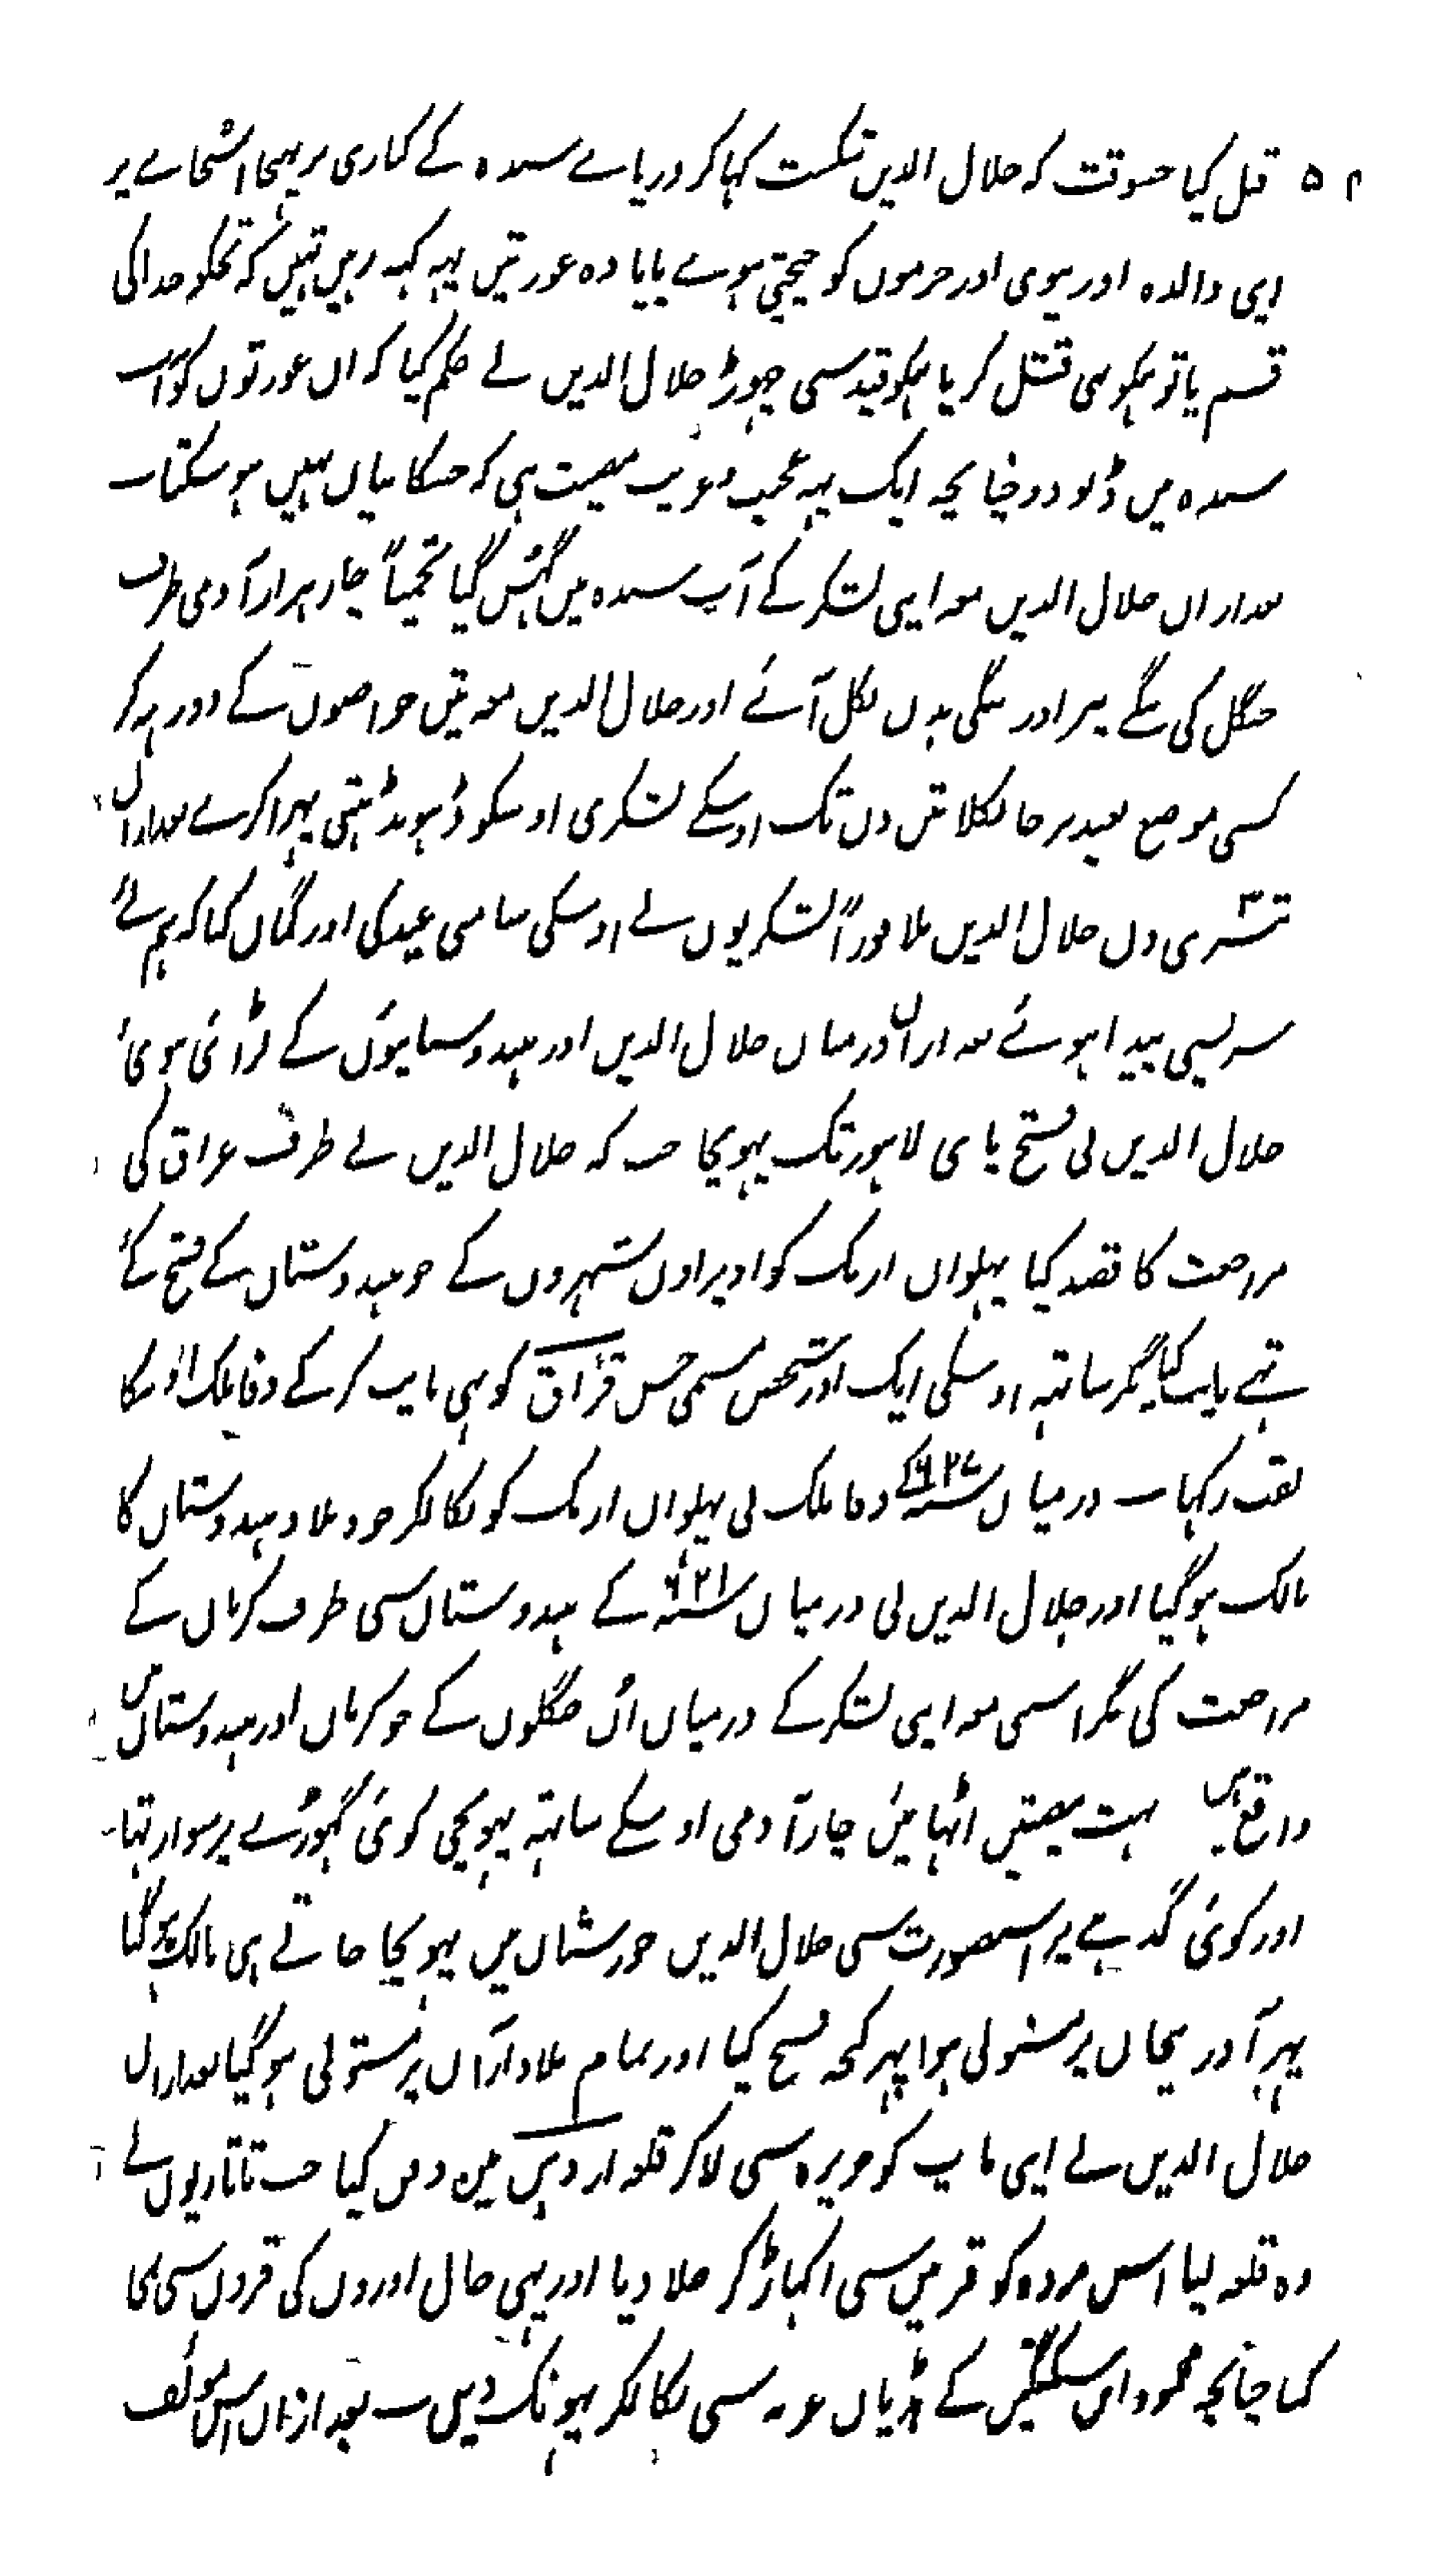 ۵۲ قتل کیا جسوقت کہ جلال الدین شکست کہا کر دریاے سندہ کے کناری پر پہنچا اسجاے پر
اپنی والدہ اور بیوی اور حرموں کو چیختی ہوے پایا وہ عورتیں یہہ کہہ رہیں تہیں کہ تجکو خدا کی
قسم یا تو ہمکو ہی قتل کر یا ہمکو قید سی چہوڑا جلال الدین نے حکم کیا کہ ان عورتوں کو آب
سندہ میں ڈبو دو چنانچہ ایک یہہ عجیب و غریب مصیبت ہی کہ جسکا بیان نہیں ہو سکتا۔
بعد ازاں جلال الدین معہ اپنی لشکر کے آب سندہ میں گہس گیا تخمیناً چار ہزار آدمی طرف
جنگل کی ننگے پیر اور ننگی بدن نکل آئے اور جلال الدین معہ تین خواصوں کے دور بہہ کر
کسی موضع بعید پر جا نکلا تین دن تک اوسکے لشکری اوسکو ڈہونڈہتی پہرا کرے بعد ازاں
تیسری دن جلال الدین ملا فوراً لشکریوں نے اوسکی سامنی عید کی اور گمان کیا کہ ہم نئے
سر نسی پیدا ہوئے بعد ازاں درمیان جلال الدین اور ہندوستانیوں کے لڑائی ہوئی
جلال الدین نی فتح پائی لاہور تک پہونچا جب کہ جلال الدین نے طرف عراق کی
مراجعت کا قصد کیا پہلوان ازبک کو اوپر اون شہروں کے جو ہندوستان کے فتح کئے
تہے نایب کیا مگر ساتہہ اوسکی ایک اور شخص مسمی حسن قزاق کو بہی نایب کر کے وفا ملک اوسکا
لقب رکہا۔ درمیان سنہ ۶۲۷ کے وفا ملک نی پہلوان ازبک کو نکالکر خود بلاد ہندوستان کا
مالک ہو گیا اور جلال الدین نی درمیان سنہ ۶۲۱ کے ہندوستان سی طرف کرمان کے
مراجعت کی مگر اسمی معہ اپنی لشکر کے درمیان اُن جنگلوں کے جو کرمان اور ہندوستان میں
واقع ہیں بہت مصیبتیں اٹہائیں چار آدمی اوسکے ساتہہ پہونچی کوئی گہوڑے پر سوار تہا۔
اور کوئی گدہے پر اسصورت سی جلال الدین خورستان میں پہونچا جاتے ہی مالک ہو گیا
پہر آذربیجان پر مستولی ہوا پہر کنجہ فتح کیا اور تمام بلاد اران پر مستولی ہو گیا بعد ازاں
جلال الدین نے اپنی باپ کو جزیرہ سی لا کر قلعہ اردہن میں دفن کیا جب تاتاریوں نے
وہ قلعہ لیا اس مردہ کو قبر میں سی اکہاڑ کر جلا دیا اور یہی حال اوروں کی قبروں سی بھی
کیا چنانچہ محمود ابن سبکتگین کے ہڈیاں غزنہ سی نکالکر پہونک دیں۔ بعد ازاں اس مولف